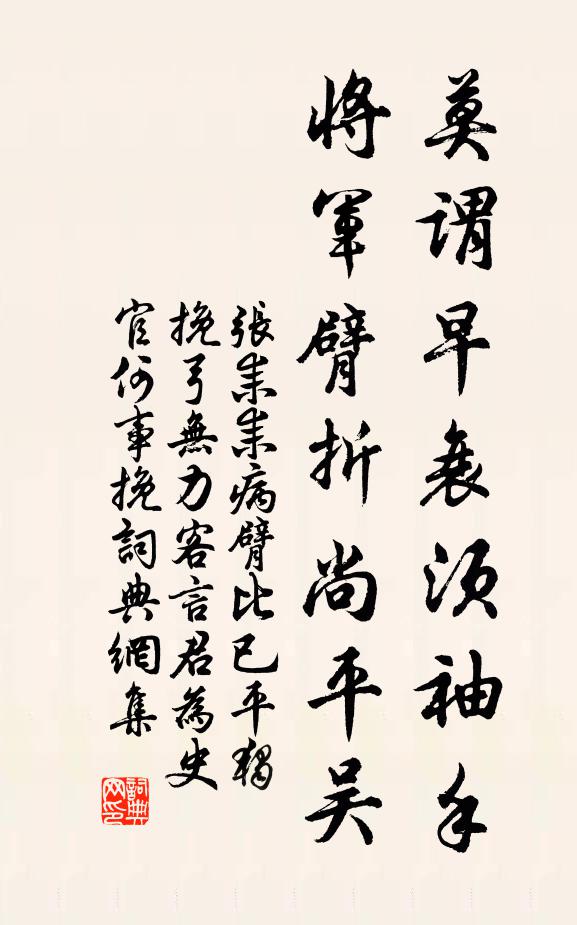 莫謂早衰須袖手
將軍臂折尚平吳
張耒耒病臂比已平獨
挽弓無力客言君為史
官何事挽詞典網集
詞典
网印